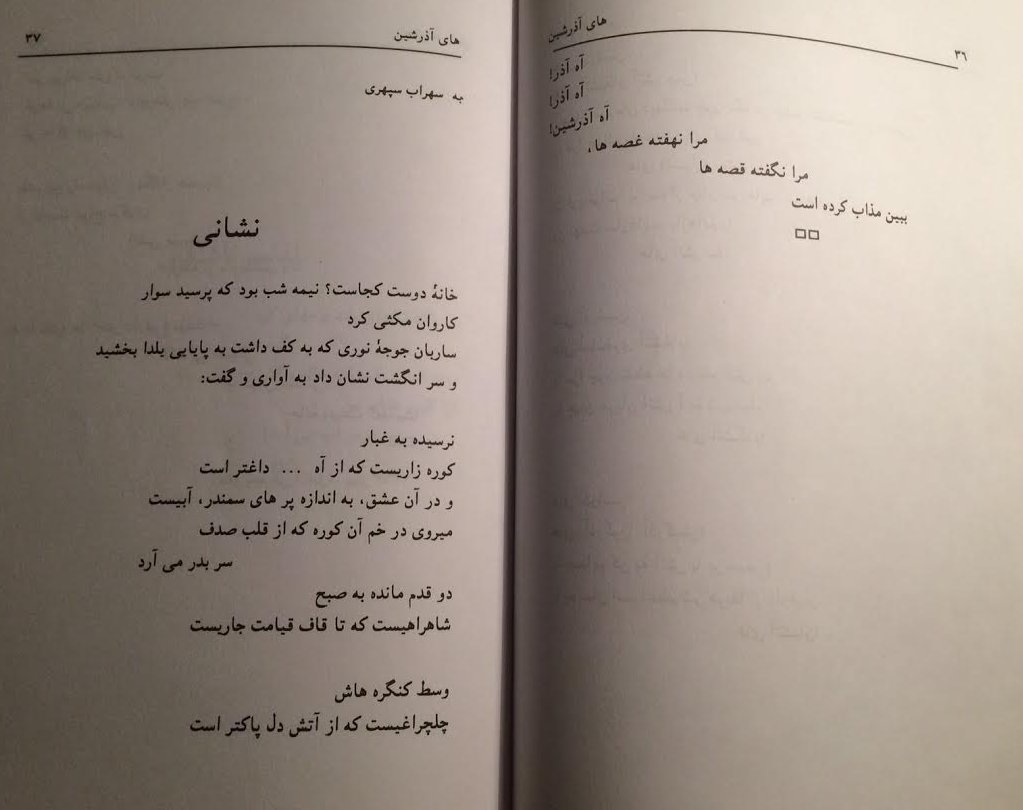 ۳۶
های آذرشین
آه آذر!
آه آذر!
آه آذرشین!
مرا نهفته غصه ها،
مرا نگفته قصه ها
ببین مذاب کرده است
های آذرشین
۳۷
به سهراب سپهری
نشانی
خانهٔ دوست کجاست؟ نیمه شب بود که پرسید سوار
کاروان مکثی کرد
ساربان جوجهٔ نوری که به کف داشت به پایایی یلدا بخشید
و سر انگشت نشان داد به آواری و گفت:
نرسیده به غبار
کوره زاریست که از آه ... داغتر است
و در آن عشق، به اندازه پر های سمندر، آبیست
میروی در خم آن کوره که از قلب صدف
سر بدر می آرد
دو قدم مانده به صبح
شاهراهیست که تا قاف قیامت جاریست
وسط کنگره هاش
چلچراغیست که از آتش دل پاکتر است